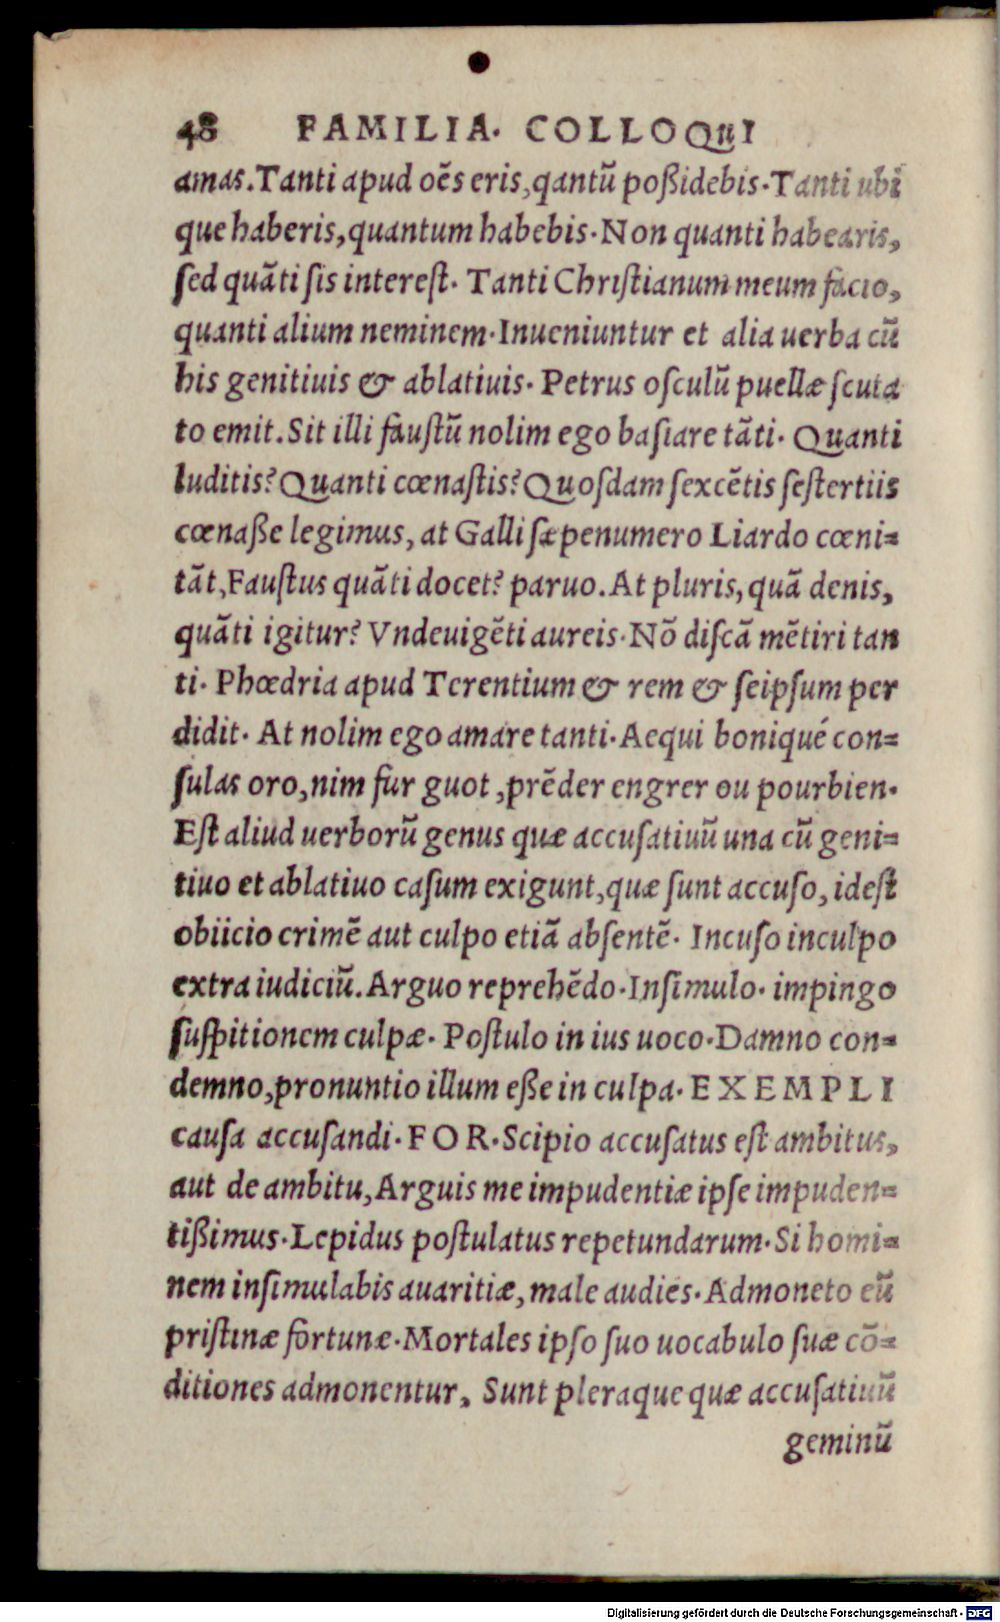 48 FAMILIA. COLLOQuI
amas. Tanti apud oēs eris, qantū poßidebis. Tanti ubi
que haberis, quantum habebis. Non quanti habearis,
ſed quāti ſis intereſt. Tanti Chriſtianum meum facio,
quanti alium neminem. Inueniuntur et alia uerba cū
his genitiuis & ablatiuis. Petrus oſculū puellæ ſcuta
to emit. Sit illi fauſtū nolim ego baſiare tāti. Quanti
luditis? Quanti cœnaſtis? Quoſdam ſexcētis ſeſtertiis
cœnaße legimus, at Galli ſæpenumero Liardo cœni=
tāt, Fauſtus quāti docet? paruo. At pluris, quā denis,
quāti igitur? Vndeuigēti aureis. Nō diſcā mētiri tan
ti. Phœdria apud Terentium & rem & ſeipſum per
didit. At nolim ego amare tanti. Aequi boniqué con=
ſulas oro, nim fur guot, prēder engrer ou pourbien.
Eſt aliud uerborū genus quæ accuſatiuū una cū geni=
tiuo et ablatiuo caſum exigunt, quæ ſunt accuſo, ideſt
obiicio crimē aut culpo etiā abſentē. Incuſo inculpo
extra iudiciū. Arguo reprehēdo. Inſimulo. impingo
ſuſpitionem culpæ. Poſtulo in ius uoco. Damno con=
demno, pronuntio illum eße in culpa. EXEMPLI
cauſa accuſandi. FOR. Scipio accuſatus eſt ambitus,
aut de ambitu, Arguis me impudentiæ ipſe impuden=
tißimus. Lepidus poſtulatus repetundarum. Si homi=
nem inſimulabis auaritiæ, male audies. Admoneto eū
priſtinæ fortunæ. Mortales ipſo ſuo uocabulo ſuæ cō=
ditiones admonentur, Sunt pleraque quæ accuſatiuū
geminū
Digitalisierung gefördert durch die Deutsche Forschungsgemeinschaft - DFG